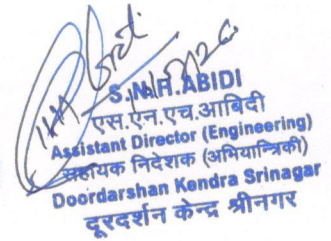 S.N.H.ABIDI
एस.एन.एच.आबिदी
Assistant Director (Engineering)
सहायक निदेशक (अभियान्त्रिकी)
Doordarshan Kendra Srinagar
दूरदर्शन केन्द्र श्रीनगर